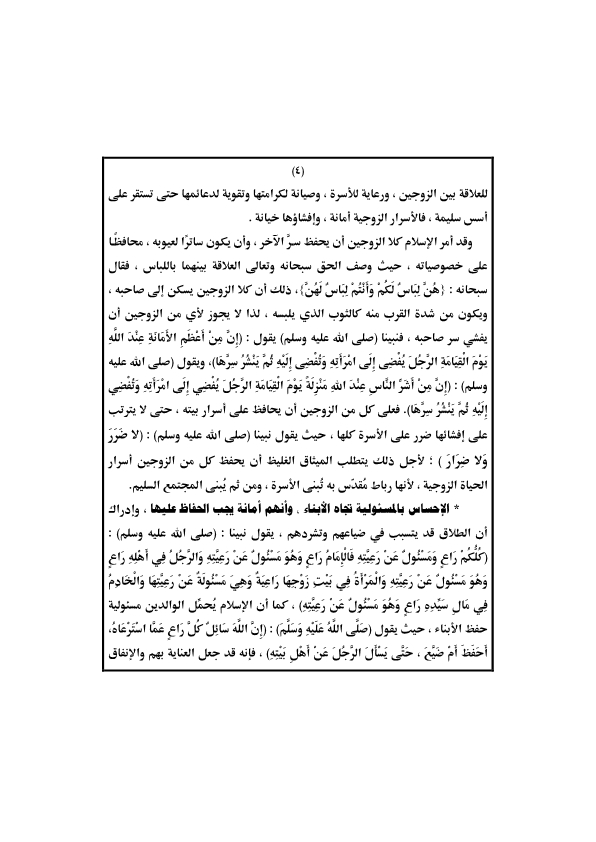 (٤)
للعلاقة بين الزوجين ، ورعاية للأسرة ، وصيانة لكرامتها وتقوية لدعائمها حتى تستقر على
أسس سليمة ، فالأسرار الزوجية أمانة ، وإفشاؤها خيانة .
وقد أمر الإسلام كلا الزوجين أن يحفظ سرَّ الآخر ، وأن يكون ساترًا لعيوبه ، محافظًا
على خصوصياته ، حيث وصف الحق سبحانه وتعالى العلاقة بينهما باللباس ، فقال
سبحانه : {هُنَّ لِبَاسٌ لَكُمْ وَأَنْتُمْ لِبَاسٌ لَهُنَّ}، ذلك أن كلا الزوجين يسكن إلى صاحبه ،
ويكون من شدة القرب منه كالثوب الذي يلبسه ، لذا لا يجوز لأي من الزوجين أن
يفشي سر صاحبه ، فنبينا (صلى الله عليه وسلم) يقول : (إِنَّ مِنْ أَعْظَمِ الأَمَانَةِ عِنْدَ اللَّهِ
يَوْمَ الْقِيَامَةِ الرَّجُلَ يُفْضِى إِلَى امْرَأَتِهِ وَتُفْضِى إِلَيْهِ ثُمَّ يَنْشُرُ سِرَّهَا)، ويقول (صلى الله عليه
وسلم) : (إِنَّ مِنْ أَشَرِّ النَّاسِ عِنْدَ اللهِ مَنْزِلَةً يَوْمَ الْقِيَامَةِ الرَّجُلَ يُفْضِي إِلَى امْرَأَتِهِ وَتُفْضِي
إِلَيْهِ ثُمَّ يَنْشُرُ سِرَّهَا). فعلى كل من الزوجين أن يحافظ على أسرار بيته ، حتى لا يترتب
على إفشائها ضرر على الأسرة كلها ، حيث يقول نبينا (صلى الله عليه وسلم) : (لا ضَرَرَ
وَلا ضِرَارَ ) ؛ لأجل ذلك يتطلب الميثاق الغليظ أن يحفظ كل من الزوجين أسرار
الحياة الزوجية ، لأنها رباط مُقدّس به تُبنى الأسرة ، ومن ثم يُبنى المجتمع السليم.
* الإحساس بالمسئولية تجاه الأبناء ، وأنهم أمانة يجب الحفاظ عليها ، وإدراك
أن الطلاق قد يتسبب في ضياعهم وتشردهم ، يقول نبينا : (صلى الله عليه وسلم) :
(كُلُّكُمْ رَاعٍ وَمَسْئُولٌ عَنْ رَعِيَّتِهِ فَالْإِمَامُ رَاعٍ وَهُوَ مَسْئُولٌ عَنْ رَعِيَّتِهِ وَالرَّجُلُ فِي أَهْلِهِ رَاعٍ
وَهُوَ مَسْئُولٌ عَنْ رَعِيَّتِهِ وَالْمَرْأَةُ فِي بَيْتِ زَوْجِهَا رَاعِيَةٌ وَهِيَ مَسْئُولَةٌ عَنْ رَعِيَّتِهَا وَالْخَادِمُ
فِي مَالِ سَيِّدِهِ رَاعٍ وَهُوَ مَسْئُولٌ عَنْ رَعِيَّتِهِ) ، كما أن الإسلام يُحمِّل الوالدين مسئولية
حفظ الأبناء ، حيث يقول (صَلَّى اللَّهُ عَلَيْهِ وَسَلَّمَ) : (إِنَّ اللَّهَ سَائِلٌ كُلَّ رَاعٍ عَمَّا اسْتَرْعَاهُ،
أَحَفَظَ أَمْ ضَيَّعَ ، حَتَّى يَسْأَلَ الرَّجُلَ عَنْ أَهْلِ بَيْتِهِ) ، فإنه قد جعل العناية بهم والإنفاق